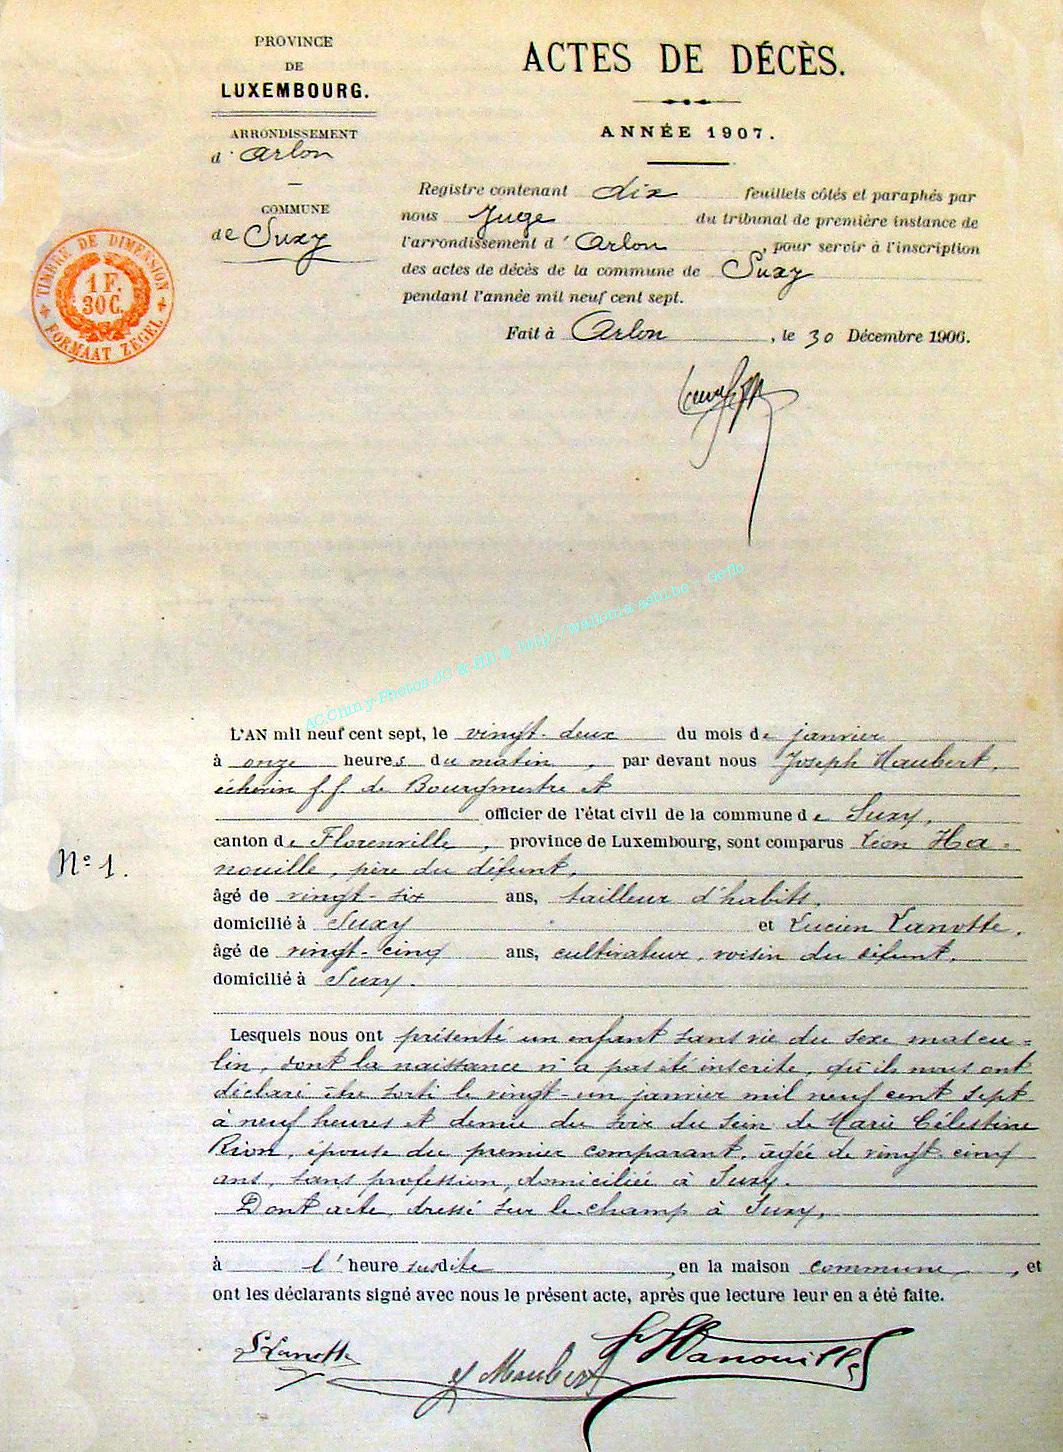 PROVINCE
DE
LUXEMBOURG.
ARRONDISSEMENT
d'Arlon
COMMUNE
de Suxy
TIMBRE DE DIMENSION
1 F.
30 C.
FORMAAT ZEGEL
ACTES DE DÉCÈS.
ANNÉE 1907.
Registre contenant dix feuillets côtés et paraphés par
nous Juge du tribunal de première instance de
l'arrondissement d'Arlon, pour servir à l'inscription
des actes de décès de la commune de Suxy
pendant l'année mil neuf cent sept.
Fait à Arlon, le 30 Décembre 1906.
AC.Chiny-Photos JG & HB & http://wallonia.asbl.be - Geflo
L'AN mil neuf cent sept, le vingt-deux du mois de janvier
à onze heures du matin, par devant nous Joseph Maubert,
échevin f.f. de Bourgmestre et
officier de l'état civil de la commune de Suxy,
canton de Florenville, province de Luxembourg, sont comparus Léon Ha=
nouille, père du défunt,
N° 1.
âgé de vingt-six ans, tailleur d'habits,
domicilié à Suxy et Lucien Lanotte,
âgé de vingt-cinq ans, cultivateur, voisin du défunt,
domicilié à Suxy.
Lesquels nous ont présenté un enfant sans vie du sexe mascu=
lin, dont la naissance n'a pas été inscrite, qu'ils nous ont
déclaré être sorti le vingt-un janvier mil neuf cent sept
à neuf heures et demie du soir du sein de Marie Célestine
Rion, épouse du premier comparant, âgée de vingt-cinq
ans, sans profession, domiciliée à Suxy.
Dont acte, dressé sur le champ à Suxy,
à l'heure susdite, en la maison commune, et
ont les déclarants signé avec nous le présent acte, après que lecture leur en a été faite.
Lanotte
J Maubert
Hanouille